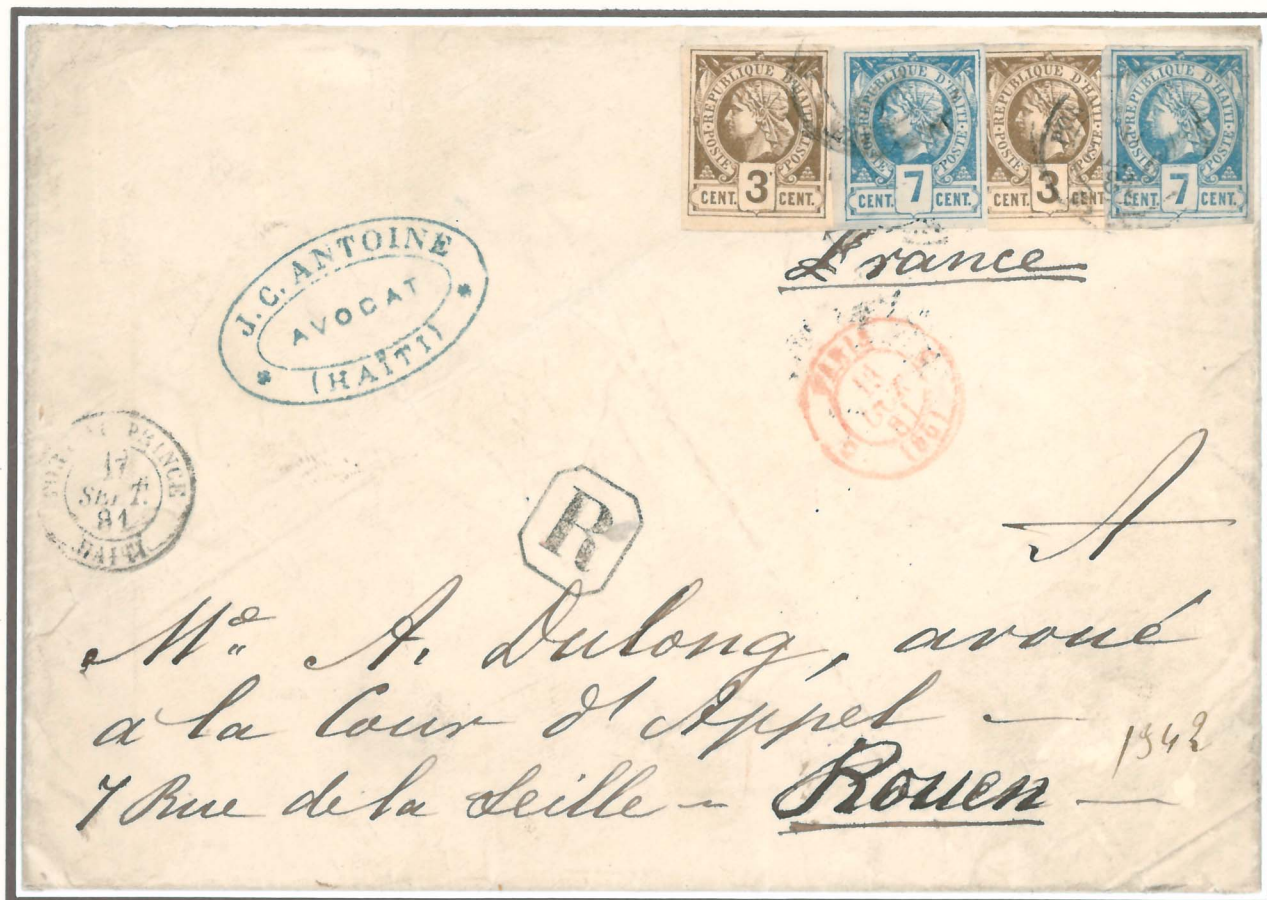 POSTE · REPUBLIQUE D'HAITI · POSTE
CENT. 3 CENT.
POSTE · REPUBLIQUE D'HAITI · POSTE
CENT. 7 CENT.
POSTE · REPUBLIQUE D'HAITI · POSTE
CENT. 3 CENT.
POSTE · REPUBLIQUE D'HAITI · POSTE
CENT. 7 CENT.
France
J. C. ANTOINE
AVOCAT
* (HAÏTI) *
PARIS
18
81
(861)
PORT AU PRINCE
17
SEPT.
81
HAITI
R
A
Me A. Dulong, avoué
à la Cour d'Appel —
7 Rue de la Seille — Rouen —
1942